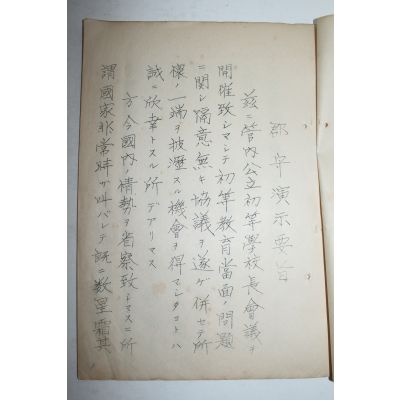 郡守演示要旨
茲ニ管內公立初等學校長會議ヲ
開催致シマシテ初等教育當面ノ問題
ニ関シ隔意無キ協議ヲ遂ゲ併セテ所
懷ノ一端ヲ披瀝スル機會ヲ得マシタコトハ
誠ニ欣幸トスル所デアリマス
方今國內ノ情勢ヲ省察致シマスニ所
謂國家非常時ガ叫バレテ既ニ数星霜其